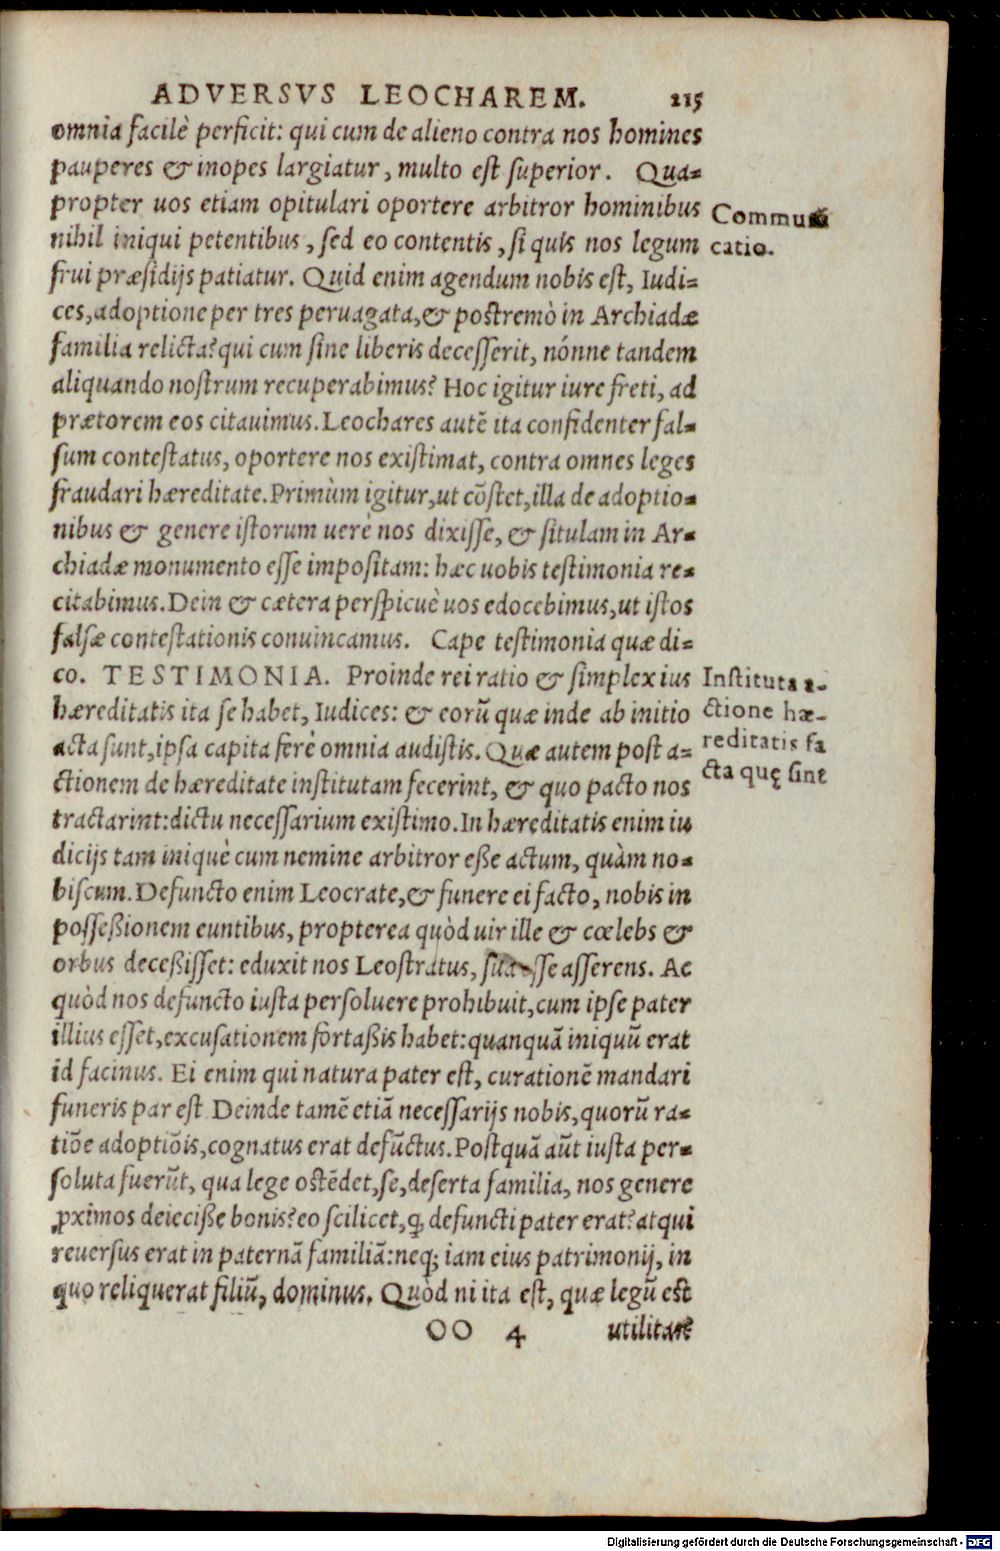 ADVERSVS LEOCHAREM. 215
omnia facilè perficit: qui cum de alieno contra nos homines
pauperes & inopes largiatur, multo est superior. Qua-
propter uos etiam opitulari oportere arbitror hominibus
nihil iniqui petentibus, sed eo contentis, si quis nos legum
frui præsidijs patiatur. Quid enim agendum nobis est, Iudi-
ces, adoptione per tres peruagata, & postremò in Archiadæ
familia relicta? qui cum sine liberis decesserit, nónne tandem
aliquando nostrum recuperabimus? Hoc igitur iure freti, ad
prætorem eos citauimus. Leochares autē ita confidenter fal-
sum contestatus, oportere nos existimat, contra omnes leges
fraudari hæreditate. Primùm igitur, ut cōstet, illa de adoptio-
nibus & genere istorum uerè nos dixisse, & situlam in Ar-
chiadæ monumento esse impositam: hæc uobis testimonia re-
citabimus. Dein & cætera perspicuè uos edocebimus, ut istos
falsæ contestationis conuincamus. Cape testimonia quæ di-
co. TESTIMONIA. Proinde rei ratio & simplex ius
hæreditatis ita se habet, Iudices: & eorū quæ inde ab initio
acta sunt, ipsa capita ferè omnia audistis. Quæ autem post a-
ctionem de hæreditate institutam fecerint, & quo pacto nos
tractarint: dictu necessarium existimo. In hæreditatis enim iu
dicijs tam iniquè cum nemine arbitror eße actum, quàm no-
biscum. Defuncto enim Leocrate, & funere ei facto, nobis in
posseßionem euntibus, propterea quòd uir ille & cœlebs &
orbus deceßisset: eduxit nos Leostratus, sua esse asserens. Ac
quòd nos defuncto iusta persoluere prohibuit, cum ipse pater
illius esset, excusationem fortaßis habet: quanquā iniquū erat
id facinus. Ei enim qui natura pater est, curationē mandari
funeris par est Deinde tamē etiā necessarijs nobis, quorū ra-
tiōe adoptiōis, cognatus erat defūctus. Postquā aūt iusta per-
soluta fuerūt, qua lege ostēdet, se, deserta familia, nos genere
ꝓximos deieciße bonis? eo scilicet, ꝙ defuncti pater erat? atqui
reuersus erat in paternā familiā: neqꝫ iam eius patrimonij, in
quo reliquerat filiū, dominus. Quòd ni ita est, quæ legū est
OO 4 utilitas?
Communi
catio.
Instituta a-
ctione hæ-
reditatis fa
cta quę sint
Digitalisierung gefördert durch die Deutsche Forschungsgemeinschaft - DFG